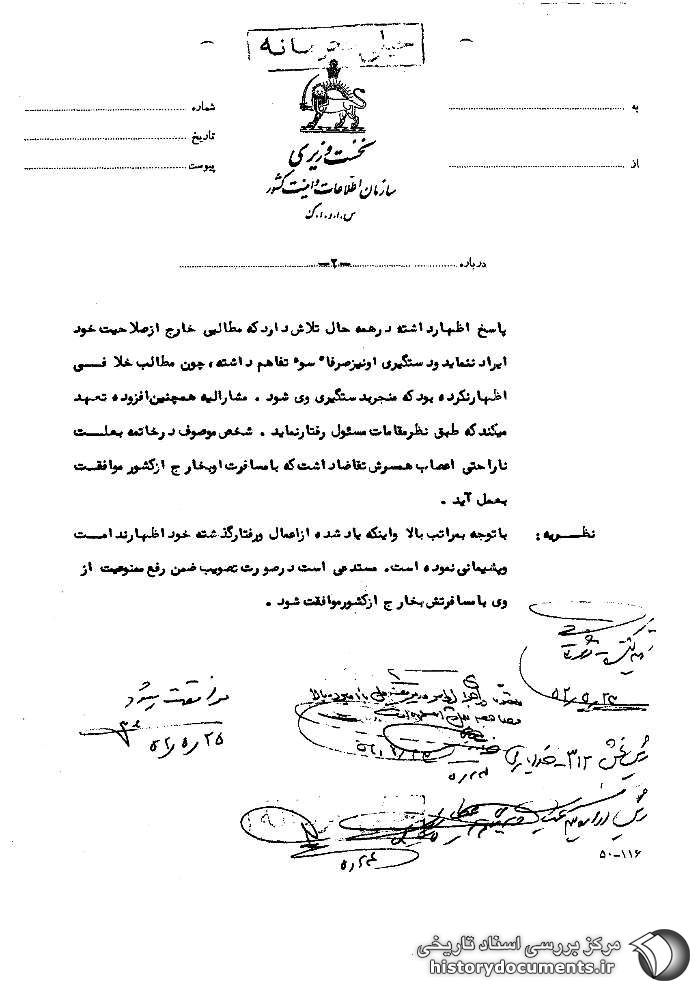 خیلی محرمانه
نخست وزیری
سازمان اطلاعات و امنیت کشور
س.ا.و.ا.ک
به
از
شماره
تاریخ
پیوست
درباره ۲-
پاسخ اظهارداشته درهمه حال تلاش داردکه مطالبی خارج ازصلاحیت خود
ایراد ننماید ودستگیری اونیزصرفا" سوء تفاهم داشته، چون مطالب خلافسی
اظهارنکرده بودکه منجربدستگیری وی شود . مشارالیه همچنین افزوده تعهد
میکندکه طبق نظرمقامات مسئول رفتارنماید . شخص موصوف درخاتمه بعلت
ناراحتی اعصاب همسرش تقاضاداشت که بامسافرت اوبخارج ازکشور موافقت
بعمل آید .
نظریه : باتوجه بمراتب بالا واینکه یاد شده ازاعمال ورفتارگذشته خود اظهارندامت
وپشیمانی نموده است. مستدعی است درصورت تصویب ضمن رفع ممنوعیت از
وی بامسافرتش بخارج ازکشورموافقت شود .
موافقت میشود
۵۲/۵/۲۵
رئیس بخش ۳۱۲
رئیس
۵۰-۱۱۶
مرکز بررسی اسناد تاریخی
historydocuments.ir